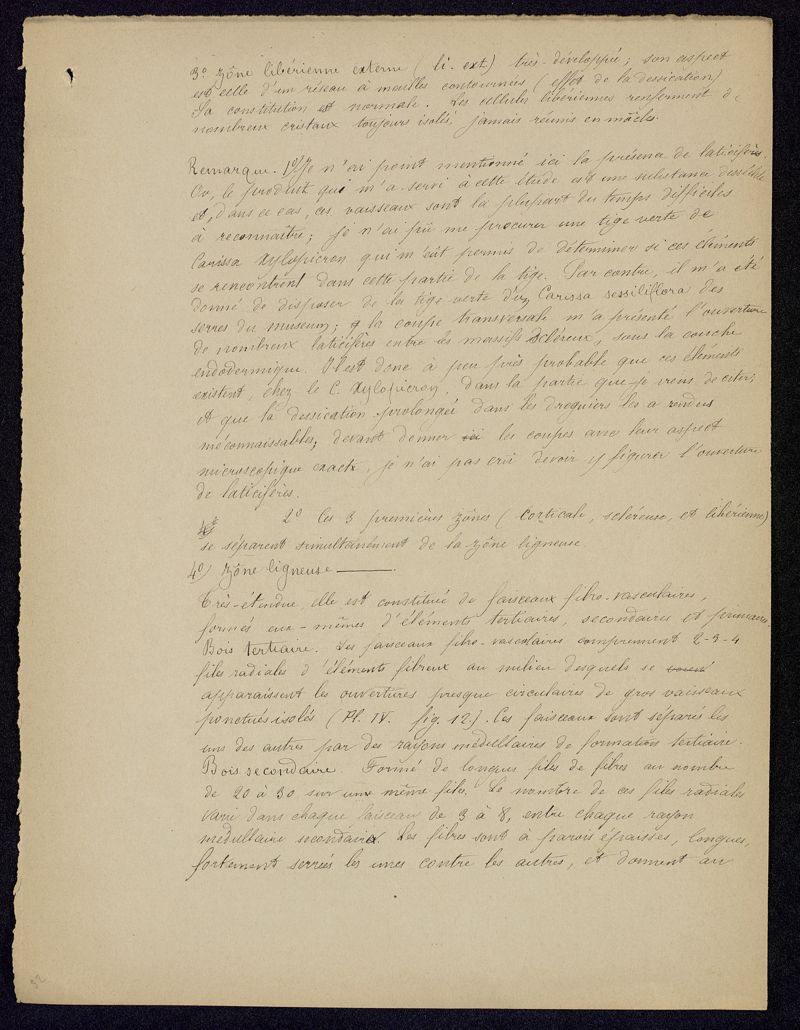 3º Zône libérienne externe (li. ext.) très-développée ; son aspect
est celle d'un réseau à mailles contournées (effet de la dessication)
Sa constitution est normale. Les cellules libériennes renferment de
nombreux cristaux toujours isolés jamais réunis en mâcles.
Remarque. 1º/ Je n'ai point mentionné ici la présence de laticifères.
Or, le produit qui m'a servi à cette étude est une substance desséchée
et, dans ce cas, ces vaisseaux sont la plupart du temps difficiles
à reconnaître ; je n'ai pu me procurer une tige verte de
Carissa Xylopicron qui m'eût permis de déterminer si ces éléments
se rencontrent dans cette partie de la tige. Par contre, il m'a été
donné de disposer de la tige verte d'un Carissa sessiliflora des
serres du museum ; la coupe transversale m'a présenté l'ouverture
de nombreux laticifères entre les massifs scléreux, sous la couche
endodermique. Il est donc à peu près probable que ces éléments
existent, chez le C. Xylopicron, dans la partie que je viens de citer ;
et que la dessication prolongée dans les droguiers les a rendus
méconnaissables ; devant donner ici les coupes avec leur aspect
microscopique exact, je n'ai pas cru devoir y figurer l'ouverture
de laticifères.
2º Les 3 premières zônes (corticale, scléreuse, et libérienne)
se séparent simultanément de la zône ligneuse
4º) Zône ligneuse ———.
Très-étendue, elle est constituée de faisceaux fibro-vasculaires,
formés eux-mêmes d'éléments tertiaires, secondaires et primaires.
Bois tertiaire. Les faisceaux fibro-vasculaires comprennent 2-3-4
files radiales d'éléments fibreux au milieu desquels se
apparaissent les ouvertures presque circulaires de gros vaisseaux
ponctués isolés (Pl. IV. fig. 12). Ces faisceaux sont séparés les
uns des autres par des rayons médullaires de formation tertiaire.
Bois secondaire. Formé de longues files de fibres au nombre
de 20 à 30 sur une même file. Le nombre de ces files radiales
varie dans chaque faisceau de 3 à 8, entre chaque rayon
médullaire secondaire. Les fibres sont à parois épaisses, longues,
fortement serrées les unes contre les autres, et donnent au
32